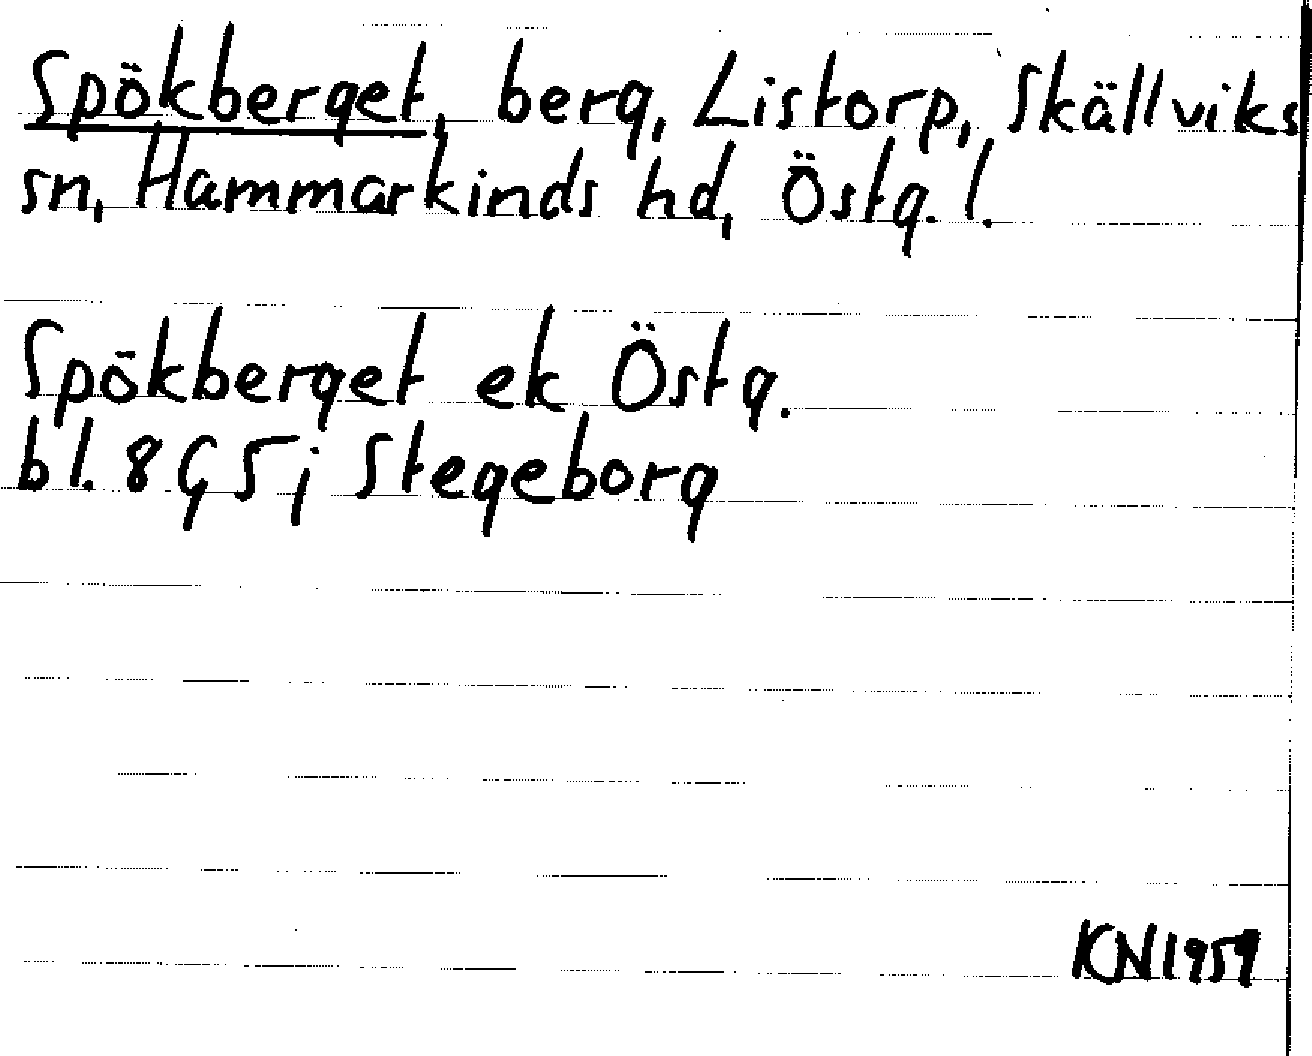 Spökberget, berg, Listorp, Skällviks
sn, Hammarkinds hd, Östg. l.
Spökberget ek Östg.
bl. 8 G 5 j Stegeborg
KN 1959